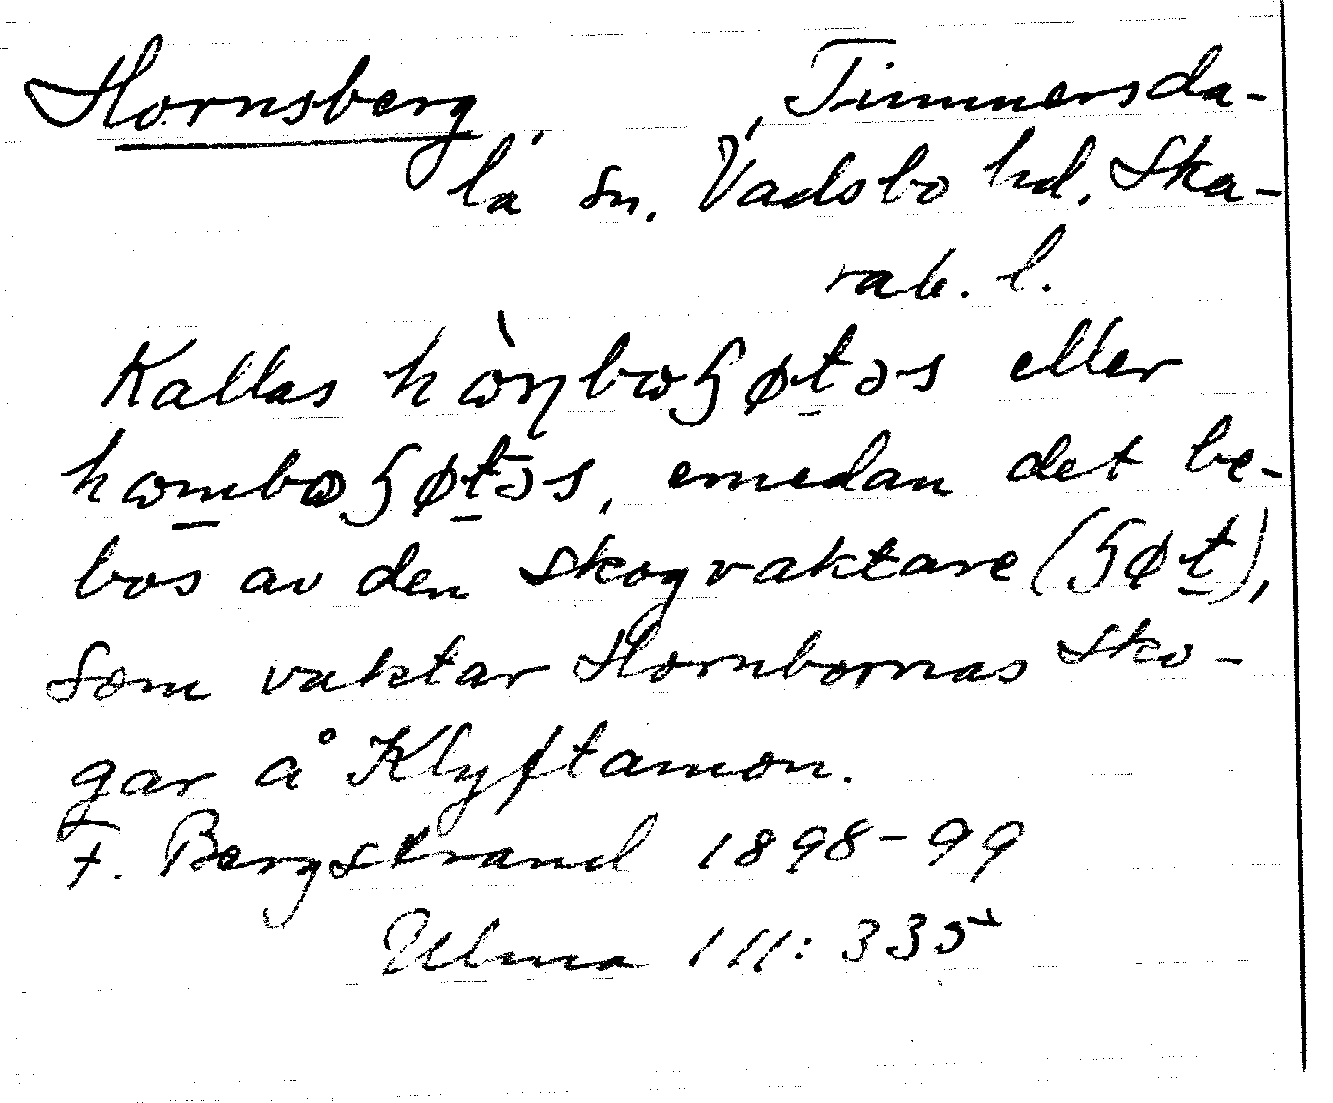 Hornsberg, , Timmersda-
la sn. Vadsbo hd. Ska-
rab. l.
Kallas eller
emedan det be-
bos av den skogvaktare
som vaktar Hornbornas sko-
gar å Klyftamon.
F. Bergstrand 1898-99
Ulma 111:335